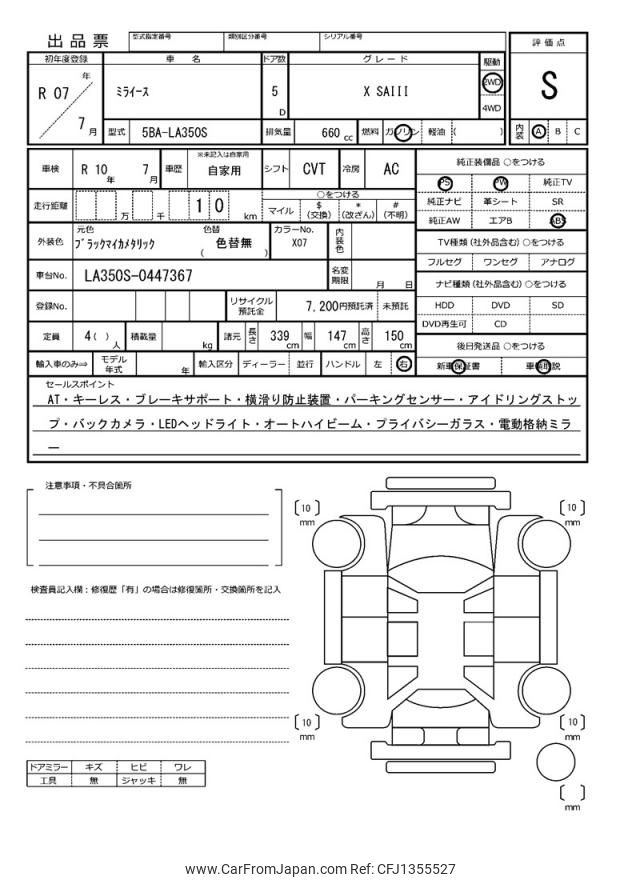 出品票 型式指定番号 類別区分番号 シリアル番号
初年度登録 車 名 ドア数 グレード 駆動 評価点
R 07 年 7 月 ミライース 5 D X SAIII 2WD 4WD S
型式 5BA-LA350S 排気量 660 cc 燃料 ガソリン 軽油 ( ) 内装 A B C
車検 R 10 年 7 月 車歴 ※未記入は自家用 自家用 シフト CVT 冷房 AC
純正装備品 ○をつける
PS PW 純正TV
走行距離 万 千 1 0 km ○をつける
マイル $ (交換) * (改ざん) # (不明)
純正ナビ 革シート SR
純正AW エアB ABS
外装色 元色 ブラックマイカメタリック 色替 ( 色替無 ) カラーNo. X07 内装色
TV種類 (社外品含む) ○をつける
フルセグ ワンセグ アナログ
車台No. LA350S-0447367 名変期限 月 日
ナビ種類 (社外品含む) ○をつける
登録No. リサイクル預託金 7,200円預託済 未預託
HDD DVD SD
DVD再生可 CD
定員 4( ) 人 積載量 kg 諸元 長さ 339 cm 幅 147 cm 高さ 150 cm
後日発送品 ○をつける
輸入車のみ⇒ モデル年式 年 輸入区分 ディーラー 並行 ハンドル 左 右
新車保証書 車輌取説
セールスポイント
AT・キーレス・ブレーキサポート・横滑り防止装置・パーキングセンサー・アイドリングストッ
プ・バックカメラ・LEDヘッドライト・オートハイビーム・プライバシーガラス・電動格納ミラ
ー
注意事項・不具合箇所
検査員記入欄：修復歴「有」の場合は修復箇所・交換箇所を記入
[10] mm
[10] mm
[10] mm
[10] mm
[ ] mm
ドアミラー キズ ヒビ ワレ
工具 無 ジャッキ 無
www.CarFromJapan.com Ref: CFJ1355527